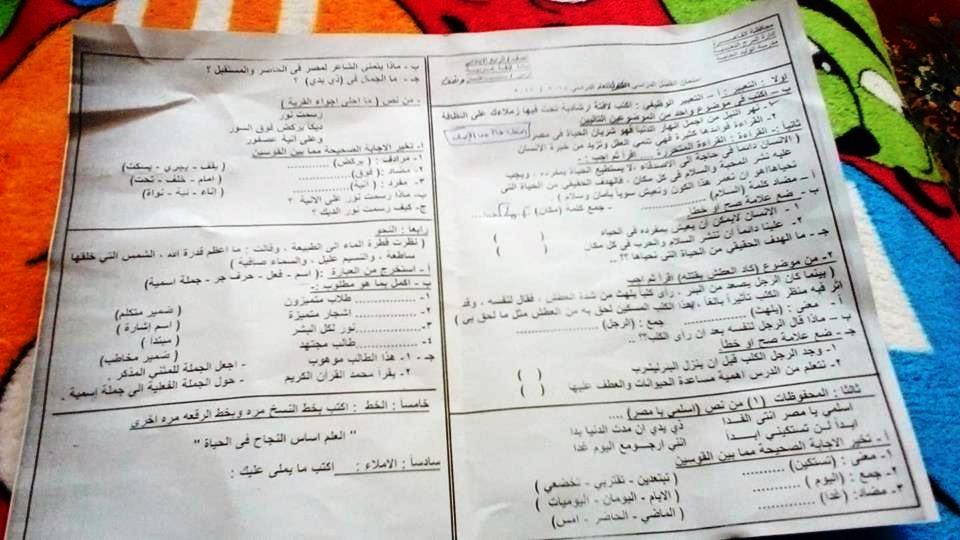 محافظة القاهرة
امتحان الفصل الدراسي
أولا : التعبير : أ - التعبير الوظيفي : اكتب لافتة إرشادية تحث فيها زملاءك على النظافة
ب - اكتب في موضوع واحد من الموضوعين التاليين
١ - نهر النيل من أجمل أنهار الدنيا فهو شريان الحياة في مصر
٢ - القراءة فوائدها كثيرة فهي تنمي العقل وتزيد من خبرة الإنسان
ثانيا :- القراءة : اقرأ ثم أجب :-
( الإنسان دائما في حاجة الى الأصدقاء ، لا يستطيع الحياة بمفرده ، ويجب
عليه نشر المحبة والسلام في كل مكان ، فالهدف الحقيقي من الحياة التي
نحياها هو أن نعمر هذا الكون ونعيش سويا بأمان وسلام )
أ - مضاد كلمة (السلام) ............ - جمع كلمة (مكان)
ب - ضع علامة صح أو خطأ
١ - الإنسان لايمكن أن يعيش بمفرده في الحياة ( )
٢ - علينا دائما أن ننشر السلام والحرب في كل مكان ( )
جـ - ما الهدف الحقيقي من الحياة التي نحياها ؟؟ ..
٢- من موضوع (كاد العطش يقتله) اقرأ ثم أجب
( بينما كان الرجل يصعد من البئر ، رأى كلبا يلهث من شدة العطش ، فقال لنفسه ، وقد
أثر فيه منظر الكلب تأثيرا بالغا ، لهذا الكلب المسكين لحق به من العطش مثل ما لحق بي )
أ - معنى : (يلهث) ............ جمع : (الرجل) ............
ب - ماذا قال الرجل لنفسه بعد أن رأى الكلب؟؟ ..
جـ - ضع علامة صح أو خطأ
١ - وجد الرجل الكلب قبل أن ينزل البئر ليشرب ( )
٢ - نتعلم من الدرس أهمية مساعدة الحيوانات والعطف عليها ( )
ثالثا : المحفوظات (١) من نص (اسلمي يا مصر) ....
اسلمي يا مصر انني الفدا ذي يدي إن مدت الدنيا يدا
أبدا لن تستكيني أبدا انني أرجو مع اليوم غدا
أ - تخير الاجابة الصحيحة مما بين القوسين
١- معنى : (تستكين) ............ ( تبتعدين - تقتربي - تخضعي )
٢- جمع : (اليوم) ............ ( الأيام - اليومان - اليوميات )
٣- مضاد: (غدا) ............ ( الماضي - الحاضر - أمس )
ب - ماذا يتمنى الشاعر لمصر في الحاضر والمستقبل ؟
جـ - ما الجمال في (ذي يدي) ؟
- من نص ( ما احلى اجواء القرية )
رسمت نور
ديكا يركض فوق السور
وعلى آنية عصفور
أ- تخير الاجابة الصحيحة مما بين القوسين
١- مرادف : ( يركض) ............ (يقف - يجري - يسكت)
٢- مضاد : (فوق) ............ (امام - خلف - تحت)
٣- مفرد : ( آنية) ............ (إناء - نية - نواة)
ب- ماذا رسمت نور على الآنية ؟
ج- كيف رسمت نور الديك ؟
رابعا : النحو
( نظرت قطرة الماء الى الطبيعة ، وقالت : ما أعظم قدرة الله ، الشمس التي خلقها
ساطعة ، والنسيم عليل ، والسماء صافية )
أ - استخرج من العبارة : ( اسم - فعل - حرف جر - جملة اسمية)
ب - اكمل بما هو مطلوب :-
١- .............. طلاب متميزون (ضمير متكلم)
٢- .............. أشجار متميزة ( اسم إشارة )
٣- .............. نور لكل البشر ( مبتدأ )
٤- .............. طالب مجتهد (ضمير مخاطب)
جـ - ١- هذا الطالب موهوب - اجعل الجملة للمثنى المذكر .
٢- يقرأ محمد القرآن الكريم - حول الجملة الفعلية الى جملة إسمية .
خامسا : الخط : اكتب بخط النسخ مره وبخط الرقعه مره اخرى
" العلم اساس النجاح في الحياة "
سادسا : الاملاء : اكتب ما يملى عليك :